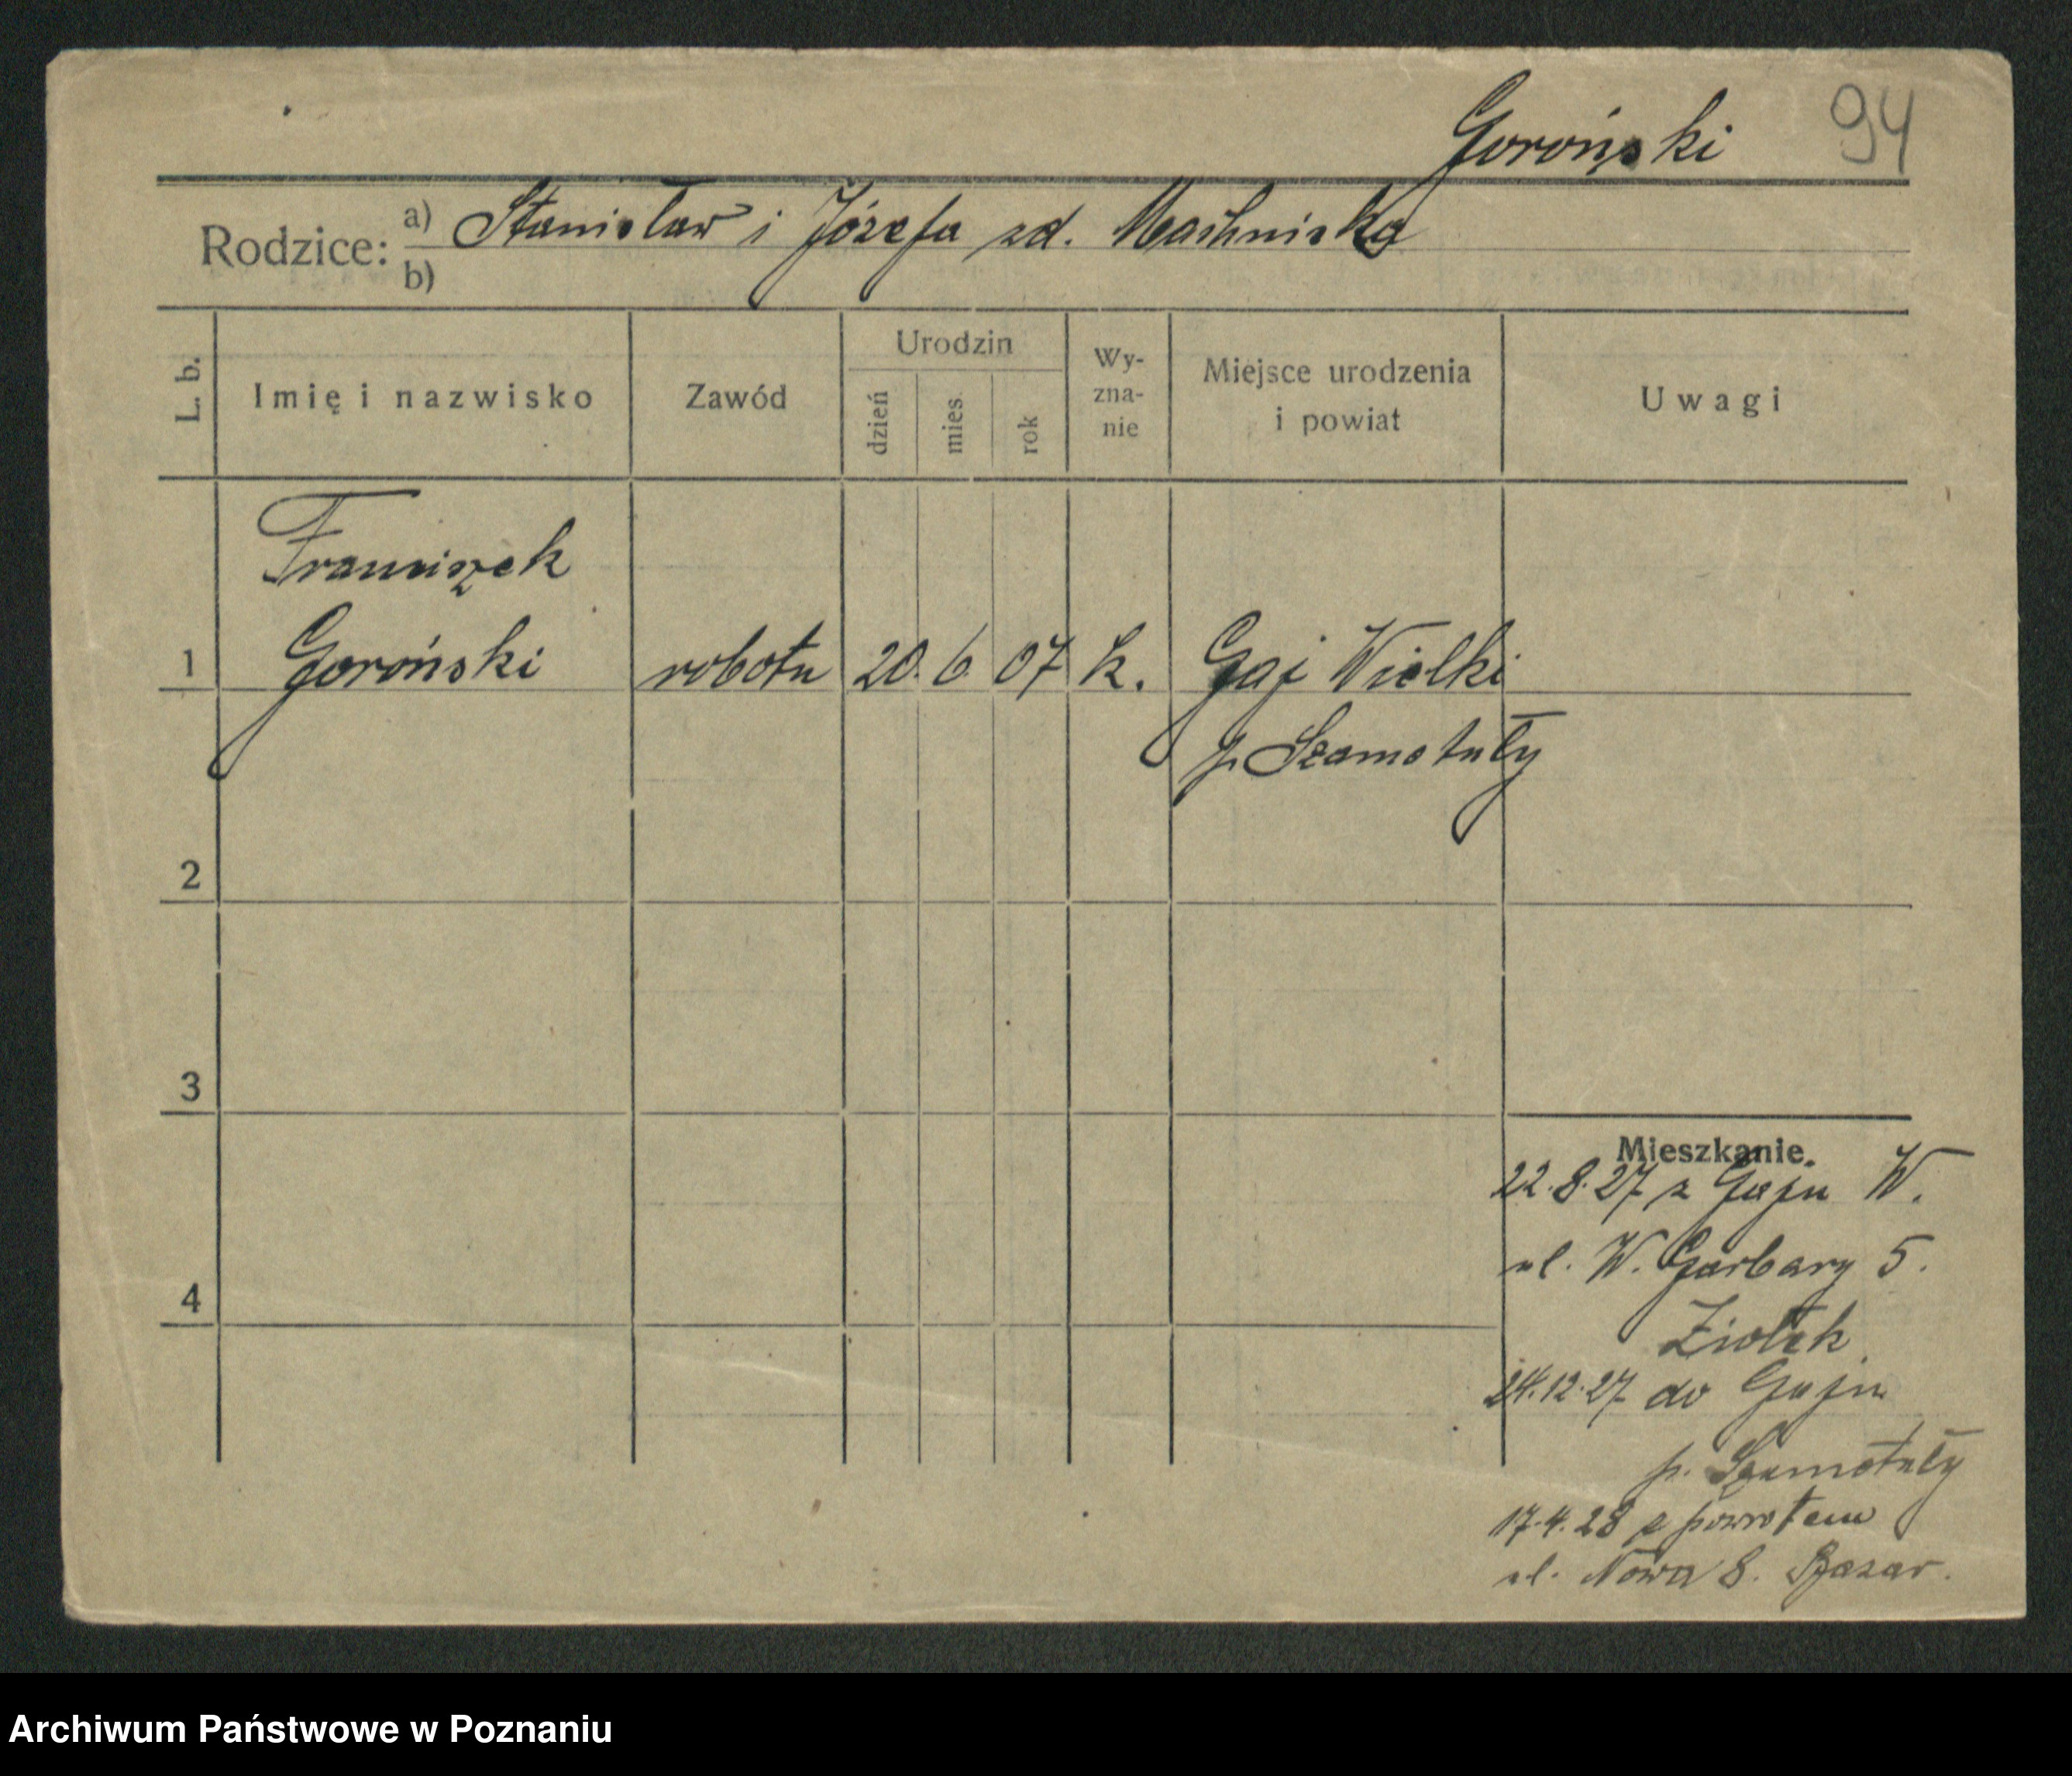 Goroński 94
Rodzice: a) Stanisław i Józefa zd.
b)
L. b. Imię i nazwisko Zawód Urodzin dzień mies. rok Wy-zna-nie Miejsce urodzenia i powiat Uwagi
Franciszek
1 Goroński robotn 20. 6. 07 k. Gaj Wielki
p. Szamotuły
2
3
Mieszkanie.
22.8.27 z Gaju W.
ul. W. Garbary 5.
4
Ziołek
24.12.27 do Gaju
p. Szamotuły
17.4.28 z powrotem
ul. Nowa 8. Bazar.
Archiwum Państwowe w Poznaniu